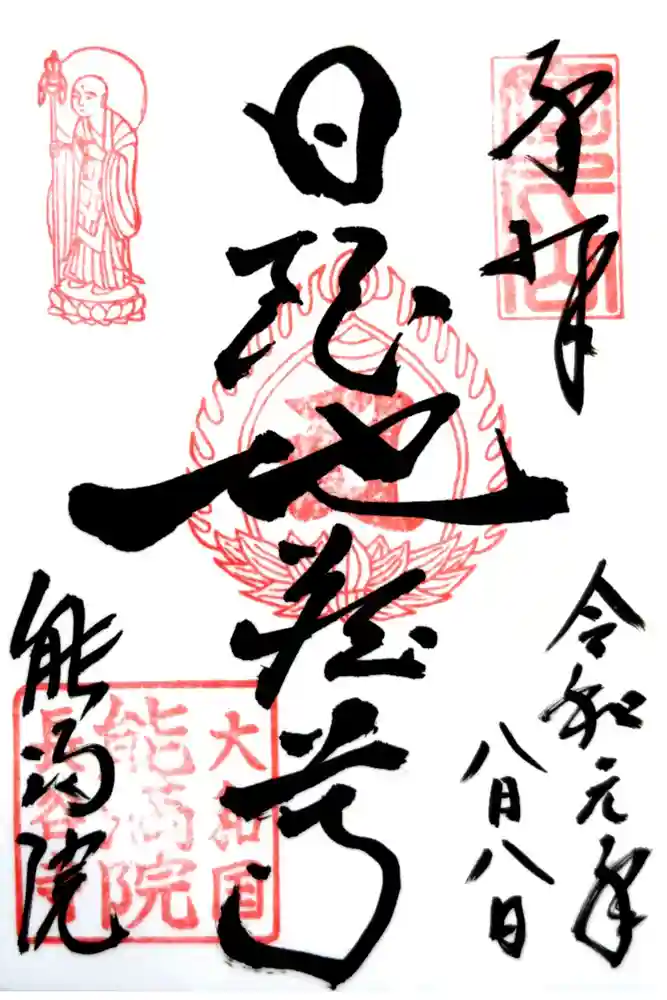 奉拝
令和元年
八月八日
日限地蔵尊
能満院
大和国
能満院
長谷寺